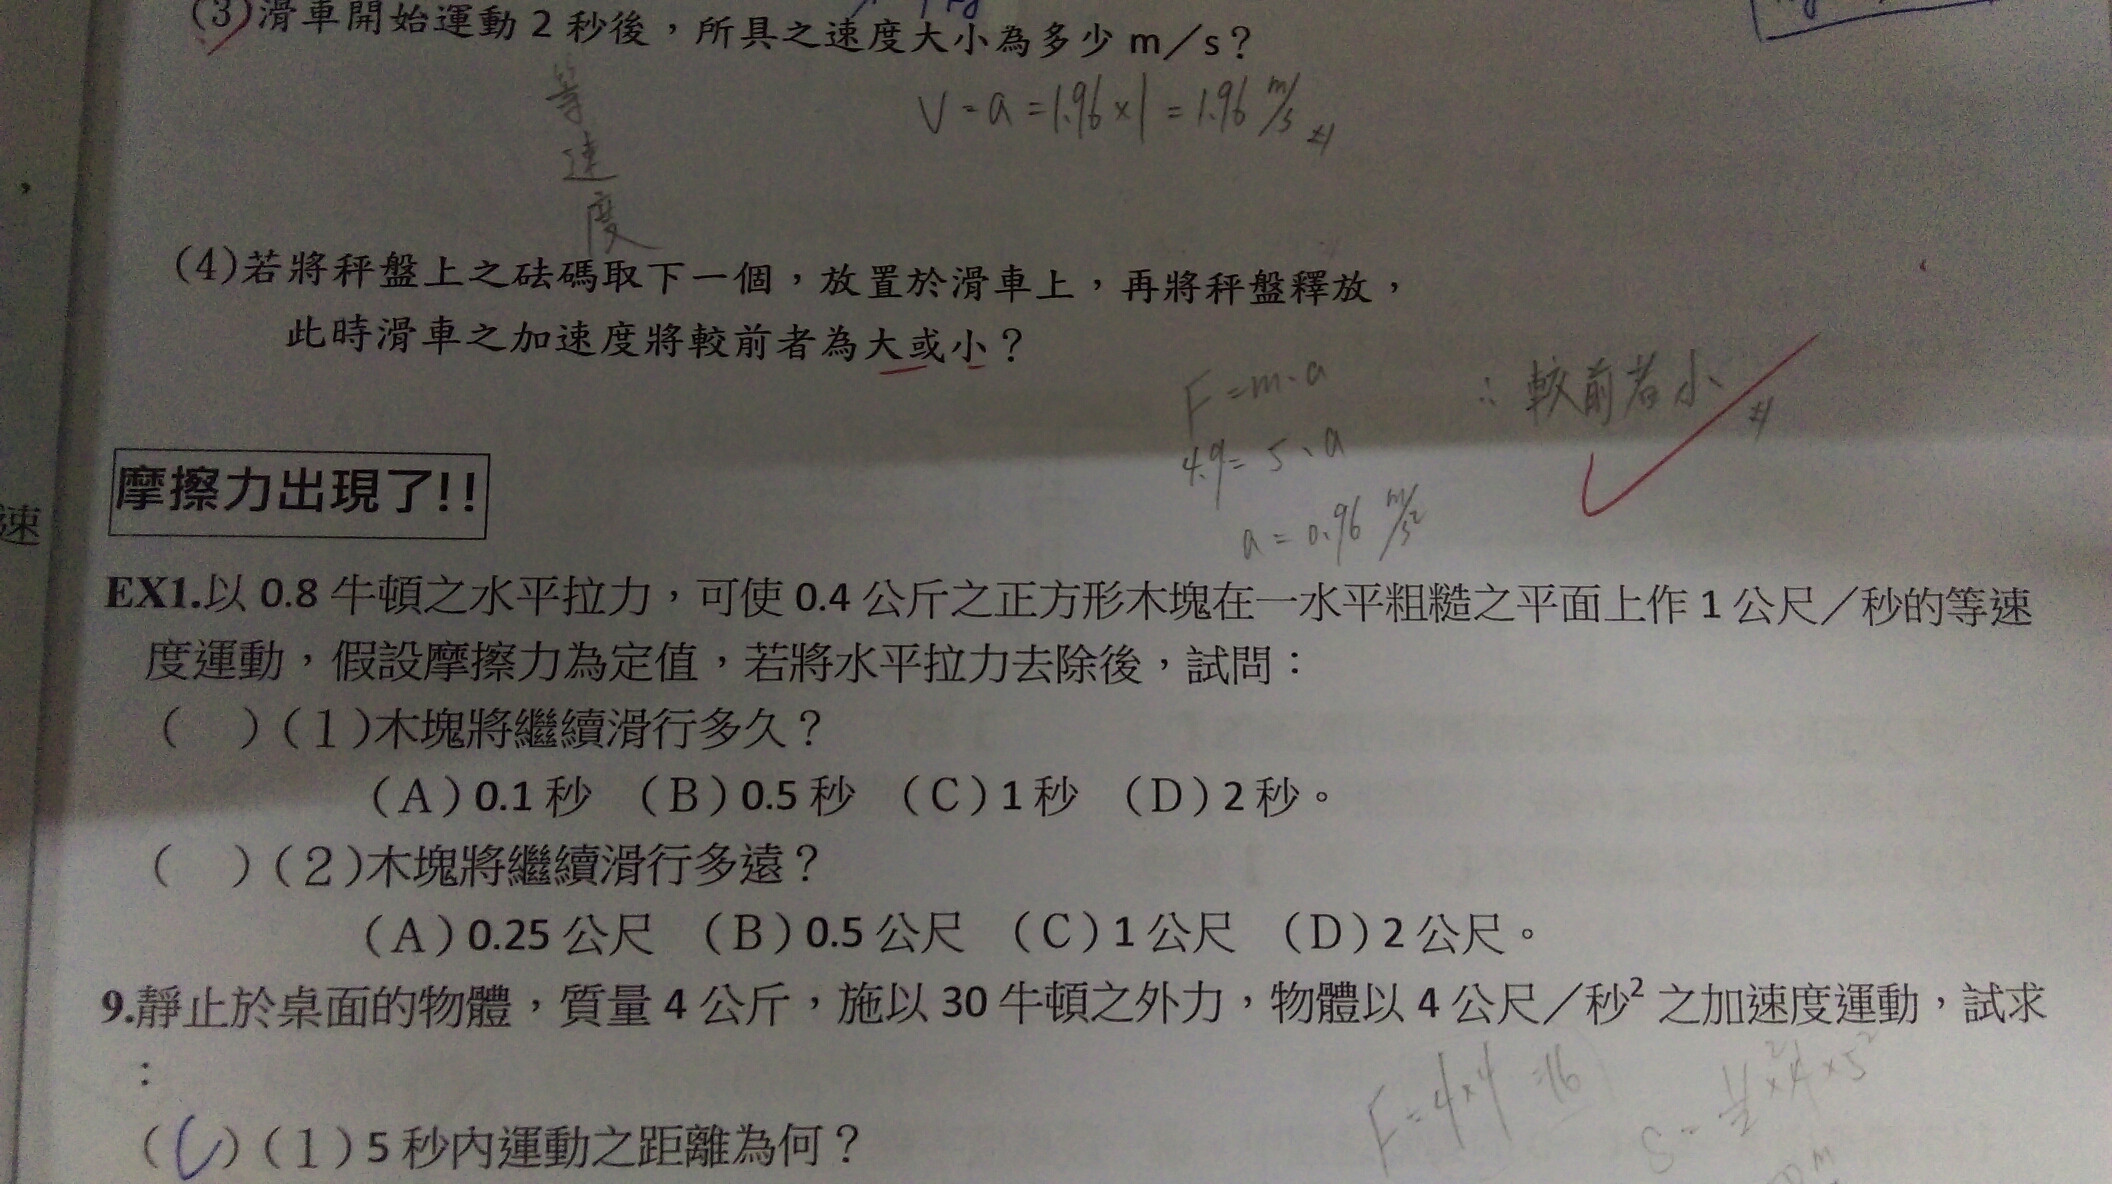 (3)滑車開始運動2秒後，所具之速度大小為多少m／s？
等速度
V=a=1.96×1=1.96 m/s
(4)若將秤盤上之砝碼取下一個，放置於滑車上，再將秤盤釋放，
此時滑車之加速度將較前者為大或小？
F=m.a
∴較前者小
4.9=5.a
a=0.96 m/s²
摩擦力出現了!!
速
EX1.以0.8牛頓之水平拉力，可使0.4公斤之正方形木塊在一水平粗糙之平面上作1公尺／秒的等速
度運動，假設摩擦力為定值，若將水平拉力去除後，試問：
（　）（1）木塊將繼續滑行多久？
（A）0.1秒　（B）0.5秒　（C）1秒　（D）2秒。
（　）（2）木塊將繼續滑行多遠？
（A）0.25公尺　（B）0.5公尺　（C）1公尺　（D）2公尺。
9.靜止於桌面的物體，質量4公斤，施以30牛頓之外力，物體以4公尺／秒²之加速度運動，試求
：
F=4×4=16
S=½×4×5²
（）（1）5秒內運動之距離為何？